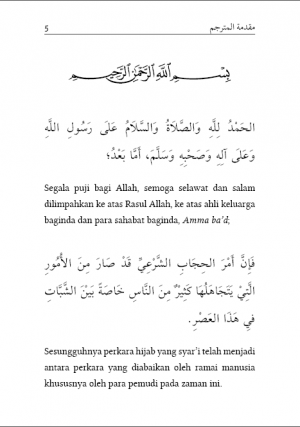 5 مقدمة المترجم
بِسْمِ اللَّهِ الرَّحْمَٰنِ الرَّحِيمِ
الحَمْدُ لِلَّهِ وَالصَّلَاةُ وَالسَّلَامُ عَلَى رَسُولِ اللَّهِ
وَعَلَى آلِهِ وَصَحْبِهِ وَسَلَّمَ، أَمَّا بَعْدُ؛
Segala puji bagi Allah, semoga selawat dan salam
dilimpahkan ke atas Rasul Allah, ke atas ahli keluarga
baginda dan para sahabat baginda, Amma ba'd;
فَإِنَّ أَمْرَ الحِجَابِ الشَّرْعِيِّ قَدْ صَارَ مِنَ الأُمُورِ
الَّتِي يَتَجَاهَلُهَا كَثِيرٌ مِنَ النَّاسِ خَاصَّةً بَيْنَ الشَّابَّاتِ
فِي هَذَا العَصْرِ.
Sesungguhnya perkara hijab yang syar'i telah menjadi
antara perkara yang diabaikan oleh ramai manusia
khususnya oleh para pemudi pada zaman ini.